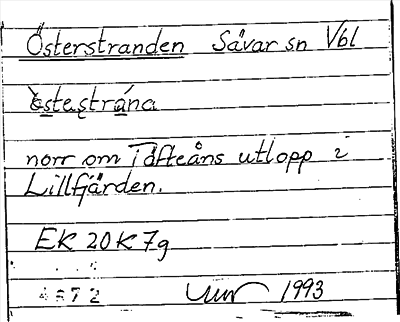 Österstranden Sävar sn Vbl
norr om Täfteåns utlopp i
Lillfjärden.
EK 20K7g
4672 1993